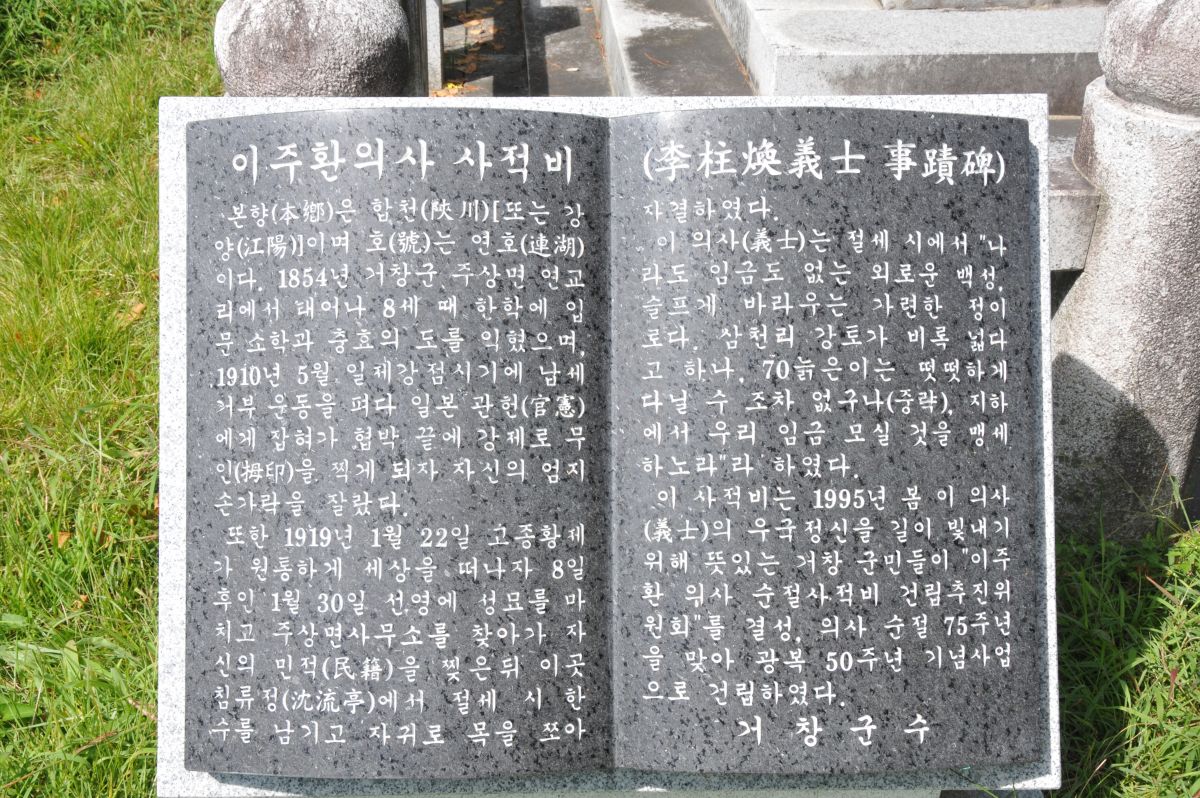 이주환의사 사적비
본향(本鄕)은 합천(陜川)[또는 강
양(江陽)]이며 호(號)는 연호(連湖)
이다. 1854년 거창군 주상면 연교
리에서 태어나 8세 때 한학에 입
문 소학과 충효의 도를 익혔으며,
1910년 5월 일제강점시기에 납세
거부 운동을 펴다 일본 관헌(官憲)
에게 잡혀가 협박 끝에 강제로 무
인(拇印)을 찍게 되자 자신의 엄지
손가락을 잘랐다.
또한 1919년 1월 22일 고종황제
가 원통하게 세상을 떠나자 8일
후인 1월 30일 선영에 성묘를 마
치고 주상면사무소를 찾아가 자
신의 민적(民籍)을 찢은뒤 이곳
침류정(沈流亭)에서 절세 시 한
수를 남기고 자귀로 목을 쪼아
(李柱煥義士 事蹟碑)
자결하였다.
이 의사(義士)는 절세 시에서 "나
라도 임금도 없는 외로운 백성,
슬프게 바라우는 가련한 정이
로다. 삼천리 강토가 비록 넓다
고 하나, 70늙은이는 떳떳하게
다닐 수 조차 없구나(중략), 지하
에서 우리 임금 모실 것을 맹세
하노라"라 하였다.
이 사적비는 1995년 봄 이 의사
(義士)의 우국정신을 길이 빛내기
위해 뜻있는 거창 군민들이 "이주
환 의사 순절사적비 건립추진위
원회"를 결성, 의사 순절 75주년
을 맞아 광복 50주년 기념사업
으로 건립하였다.
거 창 군 수